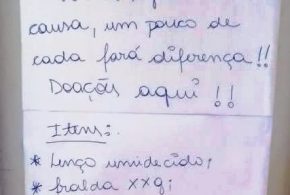 causa, um pouco de
cada fará diferença!!
Doações aqui!!
Itens:
* Lenço umidecido;
* fralda xxg;